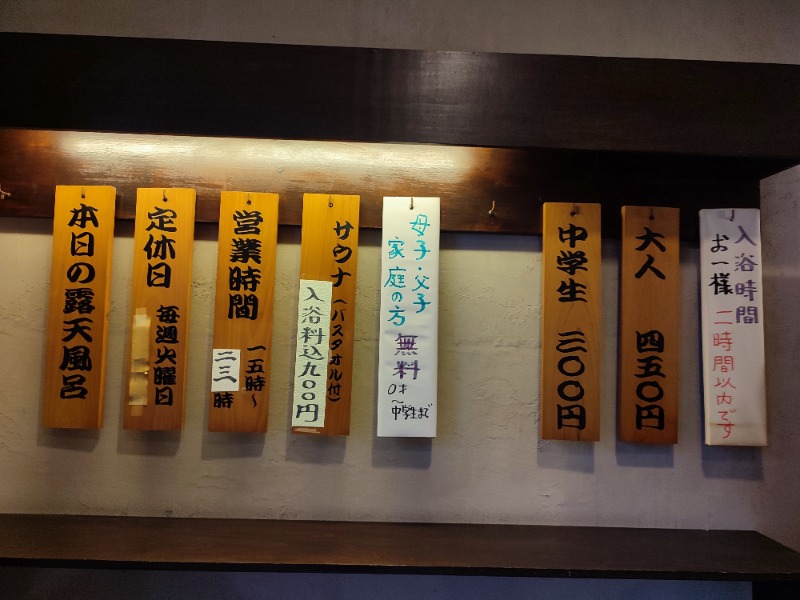 入浴時間
お一様
二時間以内です
大人 四五〇円
中学生 三〇〇円
母子・父子
家庭の方
無料
0才
〜
中学生まで
サウナ(バスタオル付)
入浴料込九〇〇円
営業時間
一五時〜
二三時
定休日
毎週火曜日
本日の露天風呂